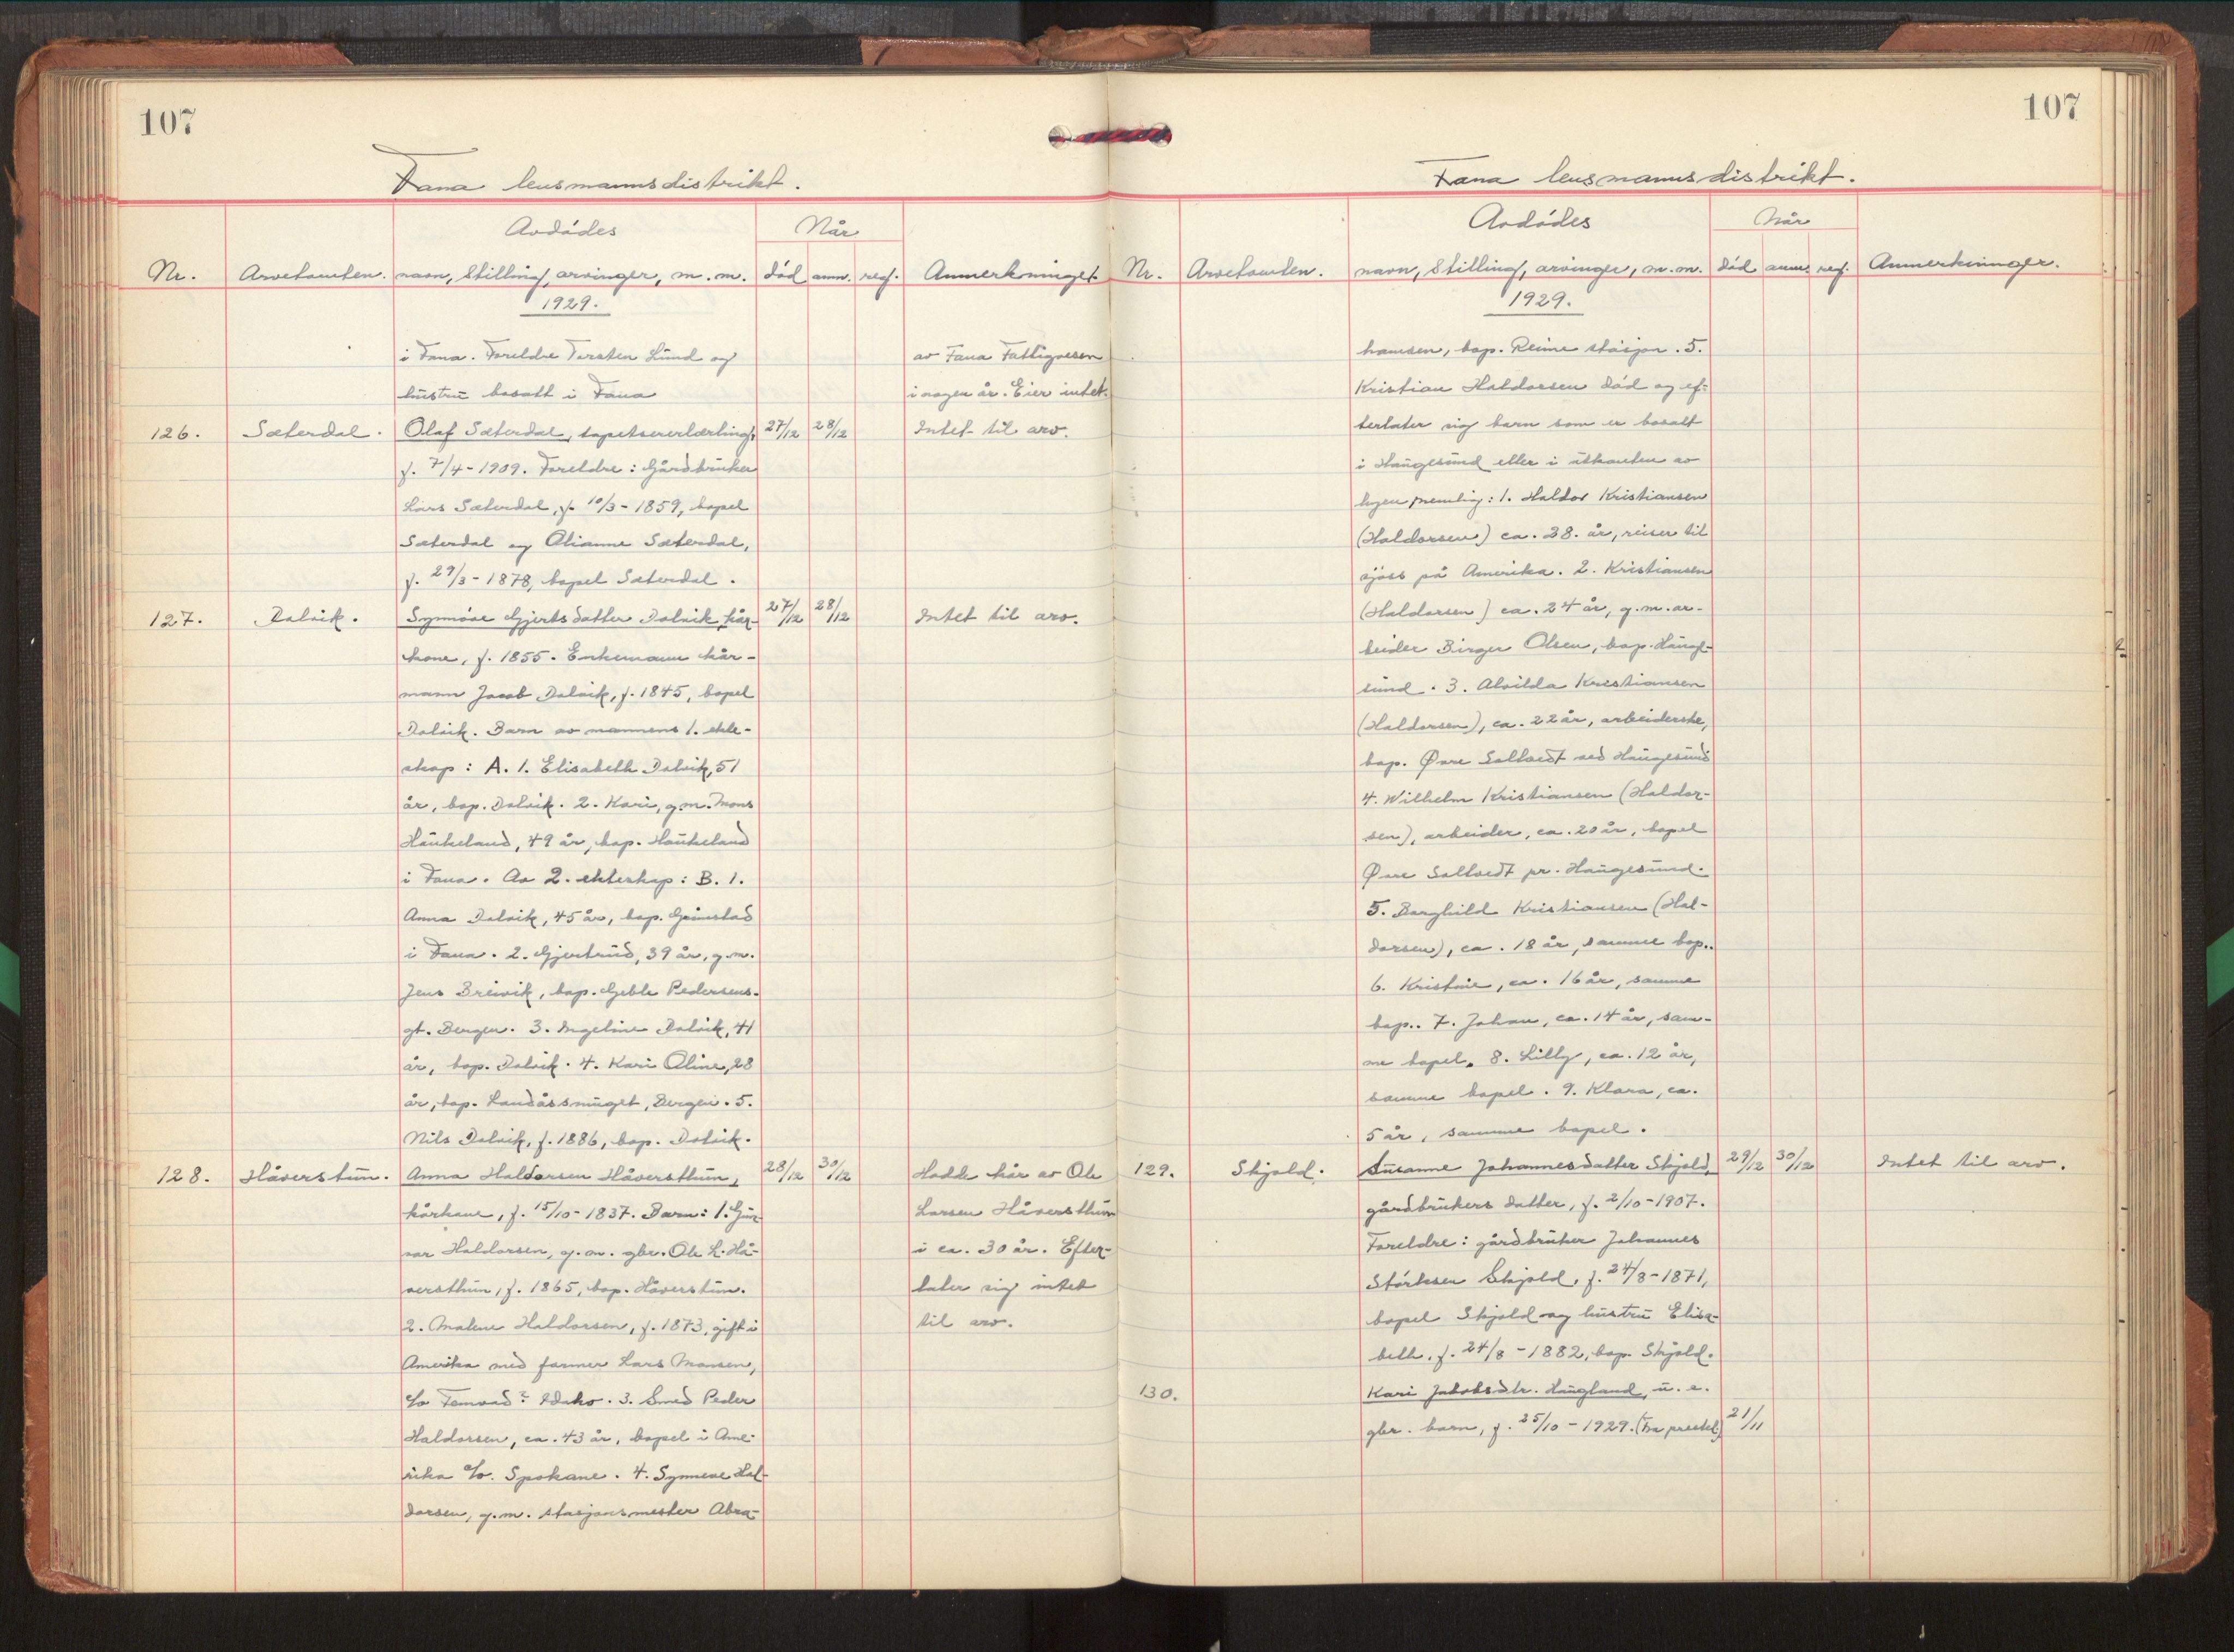 107
Fana lensmannsdistrikt.
Avdødes
Når
Nr. Arvetomten. navn, stilling, arvinger, m.m. død anm. reg. Anmerkninger
1929.
i Fana. Foreldre Torsten Lund og av Fana Fattigvesen
hustru bosatt i Fana i nogen år. Eier intet.
126. Sæterdal. Olaf Sæterdal, tapetsererlærling, 27/12 28/12 Intet til arv.
f. 7/4-1909. Foreldre: Gårdbruker
Lars Sæterdal, f. 10/3-1859, bopel
Sæterdal og Olianne Sæterdal,
f. 29/3-1878, bopel Sæterdal.
127. Dalvik. Synnøve Gjertsdatter Dalvik, kår- 27/12 28/12 Intet til arv.
kone, f. 1855. Enkemann kår-
mann Jacob Dalvik, f. 1845, bopel
Dalvik. Barn av mannens 1. ekte-
skap: A. 1. Elisabeth Dalvik, 51
år, bop. Dalvik. 2. Kari, g.m. Mons
Haukeland, 49 år, bop. Haukeland
i Fana. Av 2. ekteskap: B. 1.
Anna Dalvik, 45 år, bop. Grimstad
i Fana. 2. Gjertrud, 39 år, g.m.
Jens Breivik, bop. Geble Pedersens-
gt. Bergen. 3. Ingeline Dalvik, 41
år, bop. Dalvik. 4. Kari Oline, 28
år, bop. Landåssmuget, Bergen. 5.
Nils Dalvik, f. 1886, bop. Dalvik.
128. Håverstun. Anna Haldorsen Håversthun, 28/12 30/12 Hadde kår av Ole
kårkone, f. 15/10-1837. Barn: 1. Gun- Larsen Håversthun
var Haldorsen, g.m. gbr. Ole L. Hå- i ca. 30 år. Efter-
versthun, f. 1865, bop. Håverstun. later sig intet
2. Malene Haldorsen, f. 1873, gift i til arv.
Amerika med farmer Lars Monsen,
c/o Fernwad? Idaho. 3. Smed Peder
Haldorsen, ca. 43 år, bopel i Ame-
rika c/o. Spokane. 4. Synneve Hal-
dorsen, g.m. stasjonsmester Abra-
107
Fana lensmannsdistrikt.
Avdødes
Når
Nr. Arvetomten. navn, stilling, arvinger, m.m. død anm. reg. Anmerkninger.
1929.
hamsen, bop. Reime stasjon. 5.
Kristian Haldorsen død og ef-
terlater sig barn som er bosatt
i Haugesund eller i utkanten av
byen, nemlig: 1. Haldor Kristiansen
(Haldorsen) ca. 38. år, reiser til
sjøss på Amerika. 2. Kristiansen
(Haldorsen) ca. 24 år, g.m. ar-
beider Birger Olsen, bop. Hauge-
sund. 3. Alvilda Kristiansen
(Haldorsen), ca. 22 år, arbeiderske,
bop. Øvre Saltvedt ved Haugesund
4. Wilhelm Kristiansen (Haldor-
sen), arbeider, ca. 20 år, bopel
Øvre Saltvedt pr. Haugesund.
5. Borghild Kristiansen (Hal-
dorsen), ca. 18 år, samme bop..
6. Kristine, ca. 16 år, samme
bop.. 7. Johan, ca. 14 år, sam-
me bopel. 8. Lilly, ca. 12 år,
samme bopel. 9. Klara, ca.
5 år, samme bopel.
129. Skjold. Susanne Johannesdatter Skjold, 29/12 30/12 Intet til arv.
gårdbrukers datter, f. 2/10-1907.
Foreldre: gårdbruker Johannes
Størksen Skjold, f. 24/8-1871,
bopel Skjold og hustru Elisa-
beth, f. 24/8-1882, bop. Skjold.
130. Kari Jakobsdtr. Haugland, u. e.
gbr. barn, f. 25/10-1929. (Fra prestel) 21/11